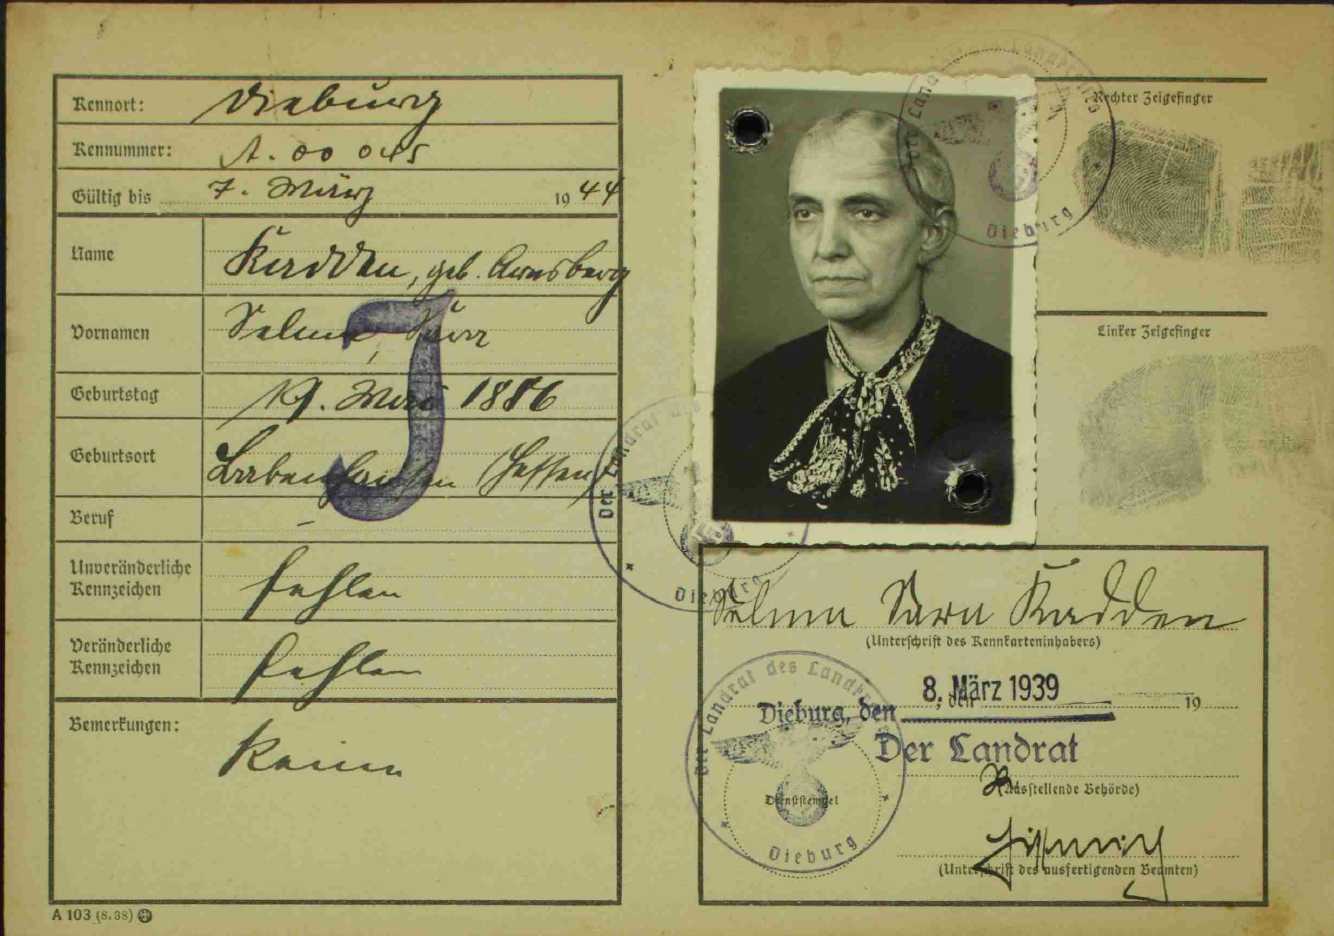 Kennort: Dieburg
Kennummer: A. 00 045
Gültig bis 7. März 1944
Name Kadden, geb. Arnsberg
Vornamen Selma, Sara
Geburtstag 19. Mai 1886
Geburtsort Babenhausen (Hessen)
Beruf –
Unveränderliche Kennzeichen fehlen
Veränderliche Kennzeichen fehlen
Bemerkungen: Keine
J
A 103 (8.38)
Rechter Zeigefinger
Linker Zeigefinger
Der Landrat
Dieburg
Der Landrat
Dieburg
Selma Sara Kadden
(Unterschrift des Kennkarteninhabers)
Dieburg, den 8. März 1939 19
Der Landrat
(Ausstellende Behörde)
Der Landrat des
Dienststempel
Dieburg
(Unterschrift des ausfertigenden Beamten)